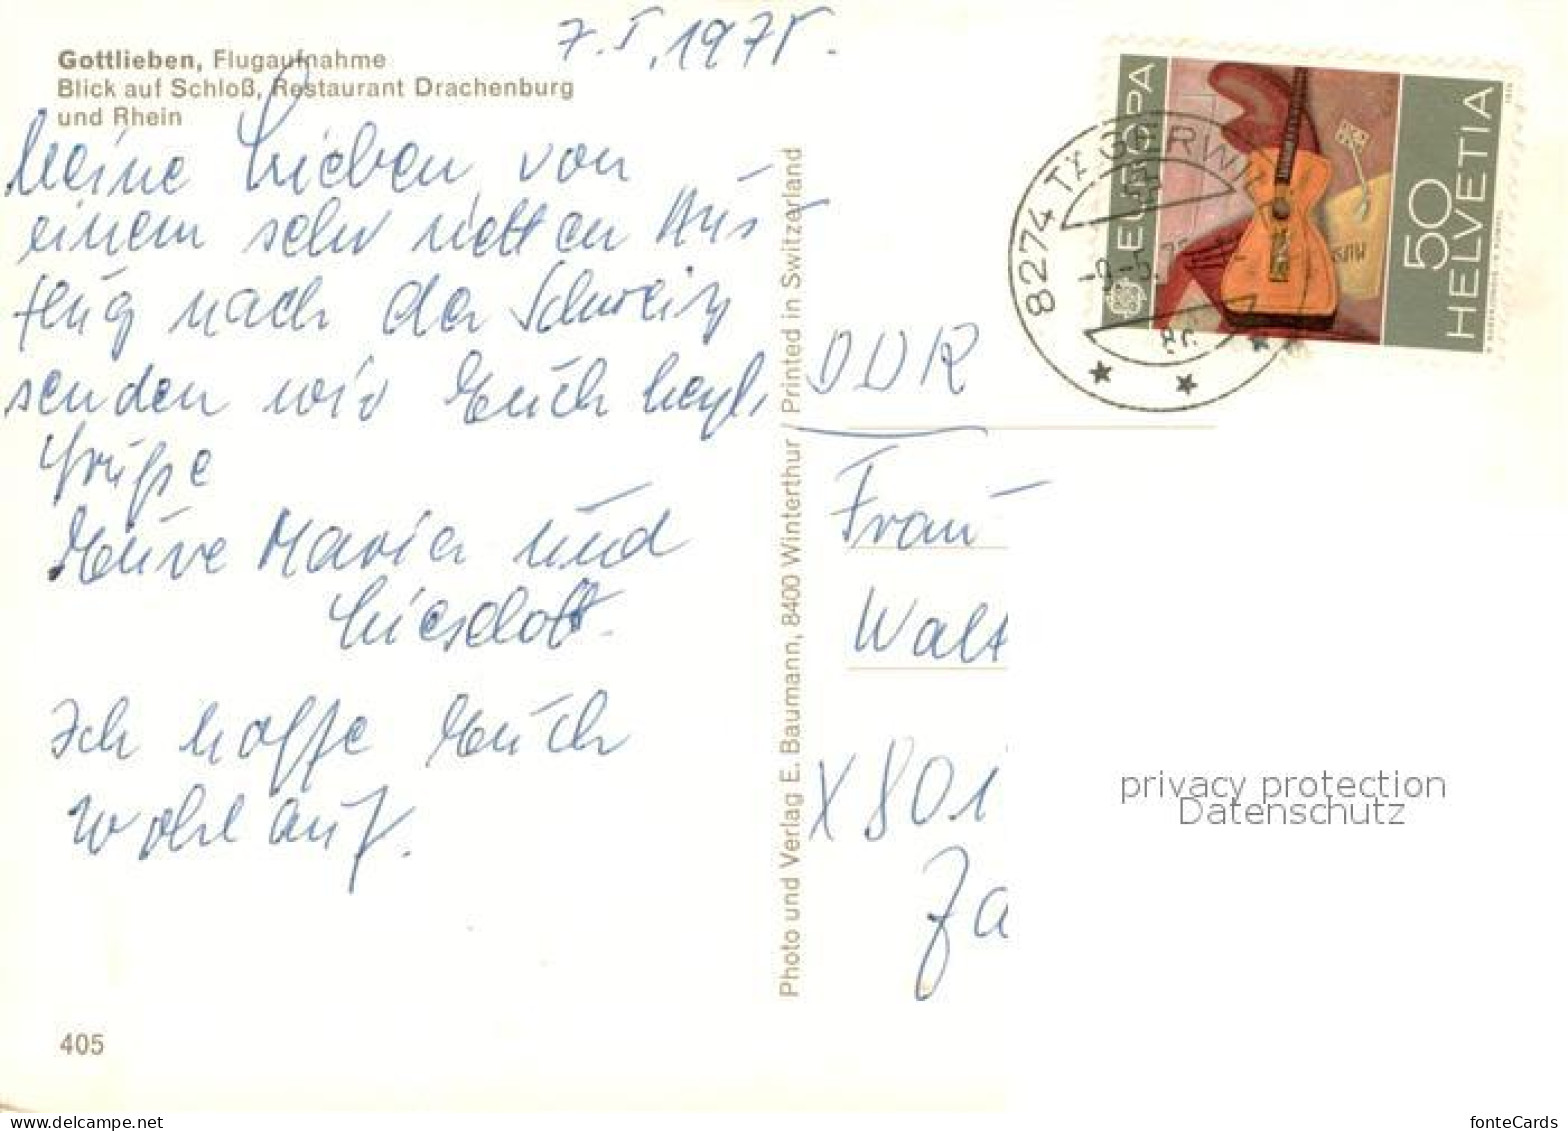 Gottlieben, Flugaufnahme
Blick auf Schloß, Restaurant Drachenburg
und Rhein
7.5.1975.
Meine Lieben von
einem sehr netten Aus-
flug nach der Schweiz
senden wir Euch herzl.
Grüße
Eure Maria und
Lieselott.
Ich hoffe Euch
wohl auf.
405
Photo und Verlag E. Baumann, 8400 Winterthur / Printed in Switzerland
EUROPA
50
HELVETIA
8274 TÄGERWIL
DDR
Frau
Walt
X 801
Za
privacy protection
Datenschutz
www.delcampe.net
fonteCards